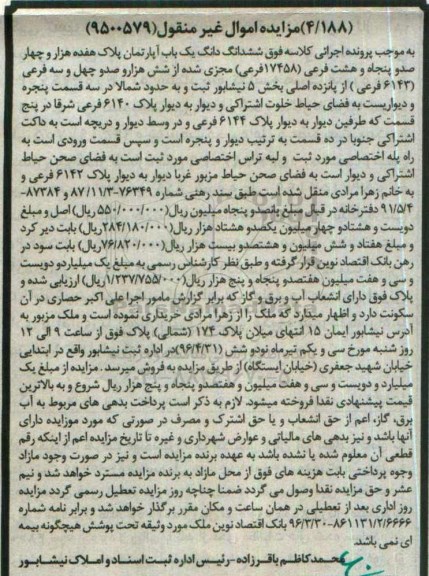 (۴/۱۸۸)مزایده اموال غیر منقول(۹۵۰۰۵۷۹)
به موجب پرونده اجرائی کلاسه فوق ششدانگ دانگ یک باب آپارتمان پلاک هفده هزار و چهار
صدو پنجاه و هشت فرعی (۱۷۴۵۸فرعی) مجزی شده از شش هزارو صدو چهل و سه فرعی
(۶۱۴۳ فرعی ) از پانزده اصلی بخش ۵ نیشابور ثبت و به حدود شمالا در سه قسمت پنجره
و دیواریست به فضای حیاط خلوت اشتراکی و دیوار به دیوار پلاک ۶۱۴۰ فرعی شرقا در پنج
قسمت که طرفین دیوار به دیوار پلاک ۶۱۴۴ فرعی و در وسط دیوار و دریچه است به داکت
اشتراکی جنوبا در ده قسمت به ترتیب دیوار و پنجره است و سپس قسمت ورودی است به
راه پله اختصاصی مورد ثبت و لبه تراس اختصاصی مورد ثبت است به فضای صحن حیاط
اشتراکی و دیوار است به فضای صحن حیاط مزبور غربا دیوار به دیوار پلاک ۶۱۴۲ فرعی و
به خانم زهرا مرادی منتقل شده است طبق سند رهنی شماره ۷۶۳۴۹-۸۷/۱۱/۳ و ۸۷۳۸۴-
۹۱/۵/۴ دفترخانه در قبال مبلغ پانصدو پنجاه میلیون ریال(۵۵۰/۰۰۰/۰۰۰ ریال) اصل و مبلغ
دویست و هشتادو چهار میلیون یکصدو هشتاد هزار ریال(۲۸۴/۱۸۰/۰۰۰ریال) بابت دیر کرد
و مبلغ هفتاد و شش میلیون و هشتصدو بیست هزار ریال(۷۶/۸۲۰/۰۰۰ریال) بابت سود در
رهن بانک اقتصاد نوین قرار گرفته و طبق نظر کارشناس رسمی به مبلغ یک میلیاردو دویست
و سی و هفت میلیون هفتصدو پنجاه و پنج هزار ریال(۱/۲۳۷/۷۵۵/۰۰۰ریال) ارزیابی شده و
پلاک فوق دارای انشعاب آب و برق و گاز که برابر گزارش مامور اجرا علی اکبر حصاری در آن
سکونت دارد و اظهار میدارد که ملک را از زهرا مرادی خریداری نموده است و ملک مزبور به
آدرس نیشابور ایمان ۱۵ انتهای میلان پلاک ۱۷۴ (شمالی) پلاک فوق از ساعت ۹ الی ۱۲
روز شنبه مورخ سی و یکم تیرماه نودو شش (۹۶/۴/۳۱)در اداره ثبت نیشابور واقع در ابتدایی
خیابان شهید جعفری (خیابان ایستگاه) از طریق مزایده به فروش میرسد . مزایده از مبلغ یک
میلیارد و دویست و سی و هفت میلیون و هفتصدو پنجاه و پنج هزار ریال شروع و به بالاترین
قیمت پیشنهادی نقدا فروخته میشود. لازم به ذکر است پرداخت بدهی های مربوط به آب
برق، گاز، اعم از حق انشعاب و یا حق اشترک و مصرف در صورتی که مورد موزایده دارای
آنها باشد و نیز بدهی های مالیاتی و عوارض شهرداری و غیره تا تاریخ مزایده اعم از اینکه رقم
قطعی آن معلوم شده یا نشده باشد به عهده برنده مزایده است و نیز در صورت وجود مازاد
وجوه پرداختی بابت هزینه های فوق از محل مازاد به برنده مزایده مسترد خواهد شد و نیم
عشر و حق مزایده نقدا وصول می گردد ضمنا چناچه روز مزایده تعطیل رسمی گردد مزایده
روز اداری بعد از تعطیلی در همان ساعت و مکان مقرر برگذار خواهد شد و برابر نامه شماره
۸۶۱۱۳۱/۲/۶۶۶۶-۹۶/۳/۳۰ بانک اقتصاد نوین ملک مورد وثیقه تحت پوشش هیچگونه بیمه
ای نمی باشد.
محمد کاظم باقرزاده-رئیس اداره ثبت اسناد و املاک نیشابور